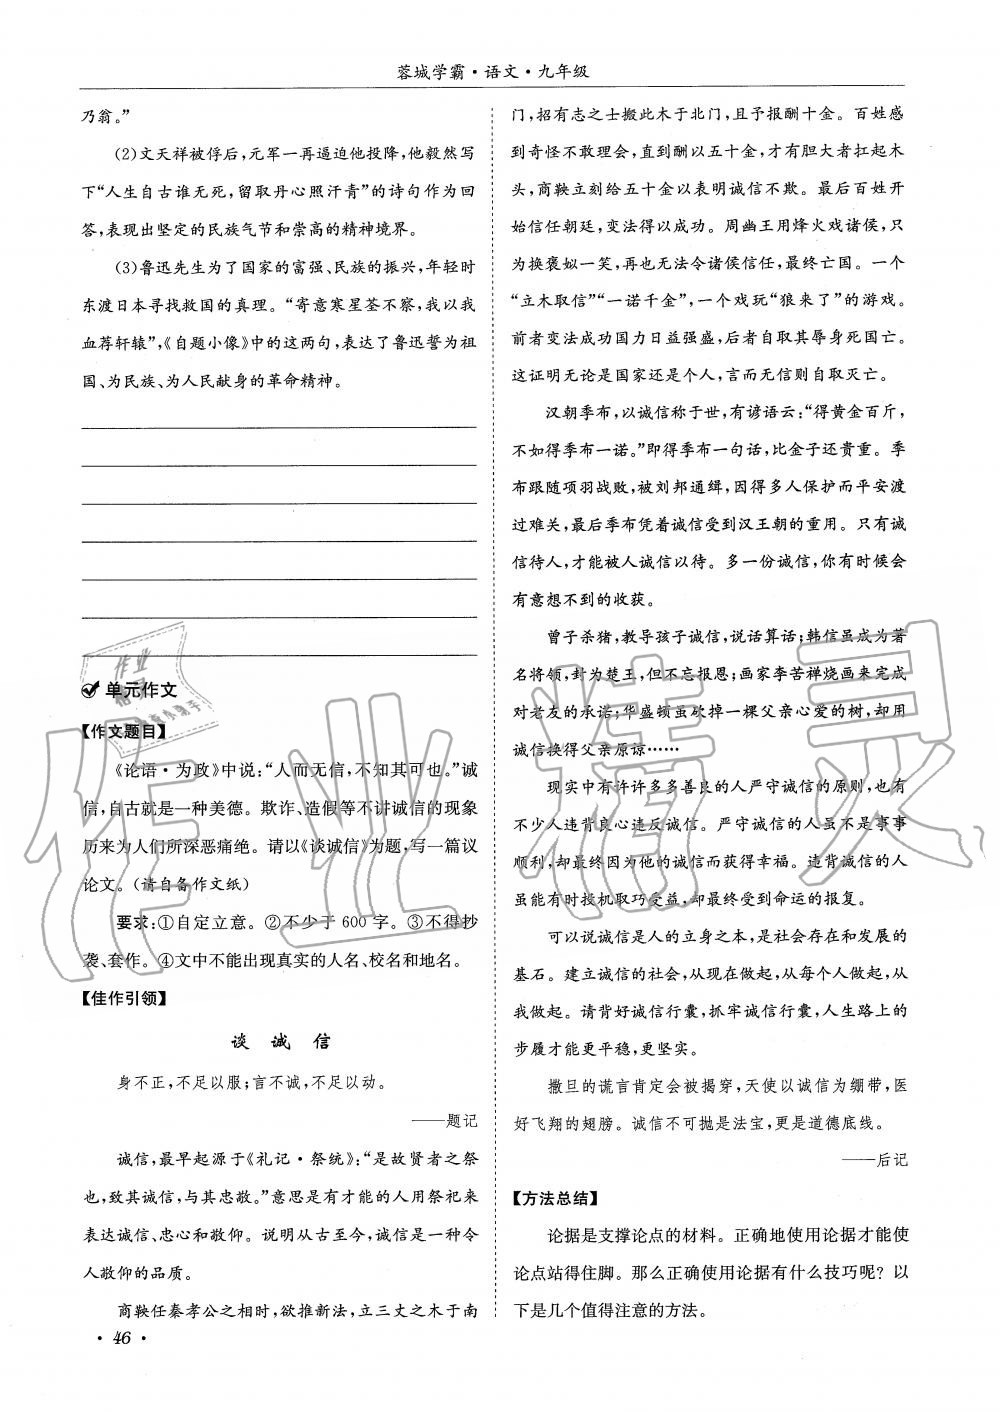 蓉城学霸·语文·九年级
乃翁。”
(2)文天祥被俘后,元军一再逼迫他投降,他毅然写
下“人生自古谁无死,留取丹心照汗青”的诗句作为回
答,表现出坚定的民族气节和崇高的精神境界。
(3)鲁迅先生为了国家的富强、民族的振兴,年轻时
东渡日本寻找救国的真理。“寄意寒星荃不察,我以我
血荐轩辕”,《自题小像》中的这两句,表达了鲁迅誓为祖
国、为民族、为人民献身的革命精神。
单元作文
【作文题目】
《论语·为政》中说:“人而无信,不知其可也。”诚
信,自古就是一种美德。欺诈、造假等不讲诚信的现象
历来为人们所深恶痛绝。请以《谈诚信》为题,写一篇议
论文。(请自备作文纸)
要求:①自定立意。②不少于 600 字。③不得抄
袭、套作。④文中不能出现真实的人名、校名和地名。
【佳作引领】
谈 诚 信
身不正,不足以服;言不诚,不足以动。
——题记
诚信,最早起源于《礼记·祭统》:“是故贤者之祭
也,致其诚信,与其忠敬。”意思是有才能的人用祭祀来
表达诚信、忠心和敬仰。说明从古至今,诚信是一种令
人敬仰的品质。
商鞅任秦孝公之相时,欲推新法,立三丈之木于南
门,招有志之士搬此木于北门,且予报酬十金。百姓感
到奇怪不敢理会,直到酬以五十金,才有胆大者扛起木
头,商鞅立刻给五十金以表明诚信不欺。最后百姓开
始信任朝廷,变法得以成功。周幽王用烽火戏诸侯,只
为换褒姒一笑,再也无法令诸侯信任,最终亡国。一个
“立木取信”“一诺千金”,一个戏玩“狼来了”的游戏。
前者变法成功国力日益强盛,后者自取其辱身死国亡。
这证明无论是国家还是个人,言而无信则自取灭亡。
汉朝季布,以诚信称于世,有谚语云:“得黄金百斤,
不如得季布一诺。”即得季布一句话,比金子还贵重。季
布跟随项羽战败,被刘邦通缉,因得多人保护而平安渡
过难关,最后季布凭着诚信受到汉王朝的重用。只有诚
信待人,才能被人诚信以待。多一份诚信,你有时候会
有意想不到的收获。
曾子杀猪,教导孩子诚信,说话算话;韩信虽成为著
名将领,封为楚王,但不忘报恩;画家李苦禅烧画来完成
对老友的承诺;华盛顿虽砍掉一棵父亲心爱的树,却用
诚信换得父亲原谅……
现实中有许许多多善良的人严守诚信的原则,也有
不少人违背良心违反诚信。严守诚信的人虽不是事事
顺利,却最终因为他的诚信而获得幸福。违背诚信的人
虽能有时投机取巧受益,却最终受到命运的报复。
可以说诚信是人的立身之本,是社会存在和发展的
基石。建立诚信的社会,从现在做起,从每个人做起,从
我做起。请背好诚信行囊,抓牢诚信行囊,人生路上的
步履才能更平稳,更坚实。
撒旦的谎言肯定会被揭穿,天使以诚信为绷带,医
好飞翔的翅膀。诚信不可抛是法宝,更是道德底线。
——后记
【方法总结】
论据是支撑论点的材料。正确地使用论据才能使
论点站得住脚。那么正确使用论据有什么技巧呢?以
下是几个值得注意的方法。
·46·
作业精灵